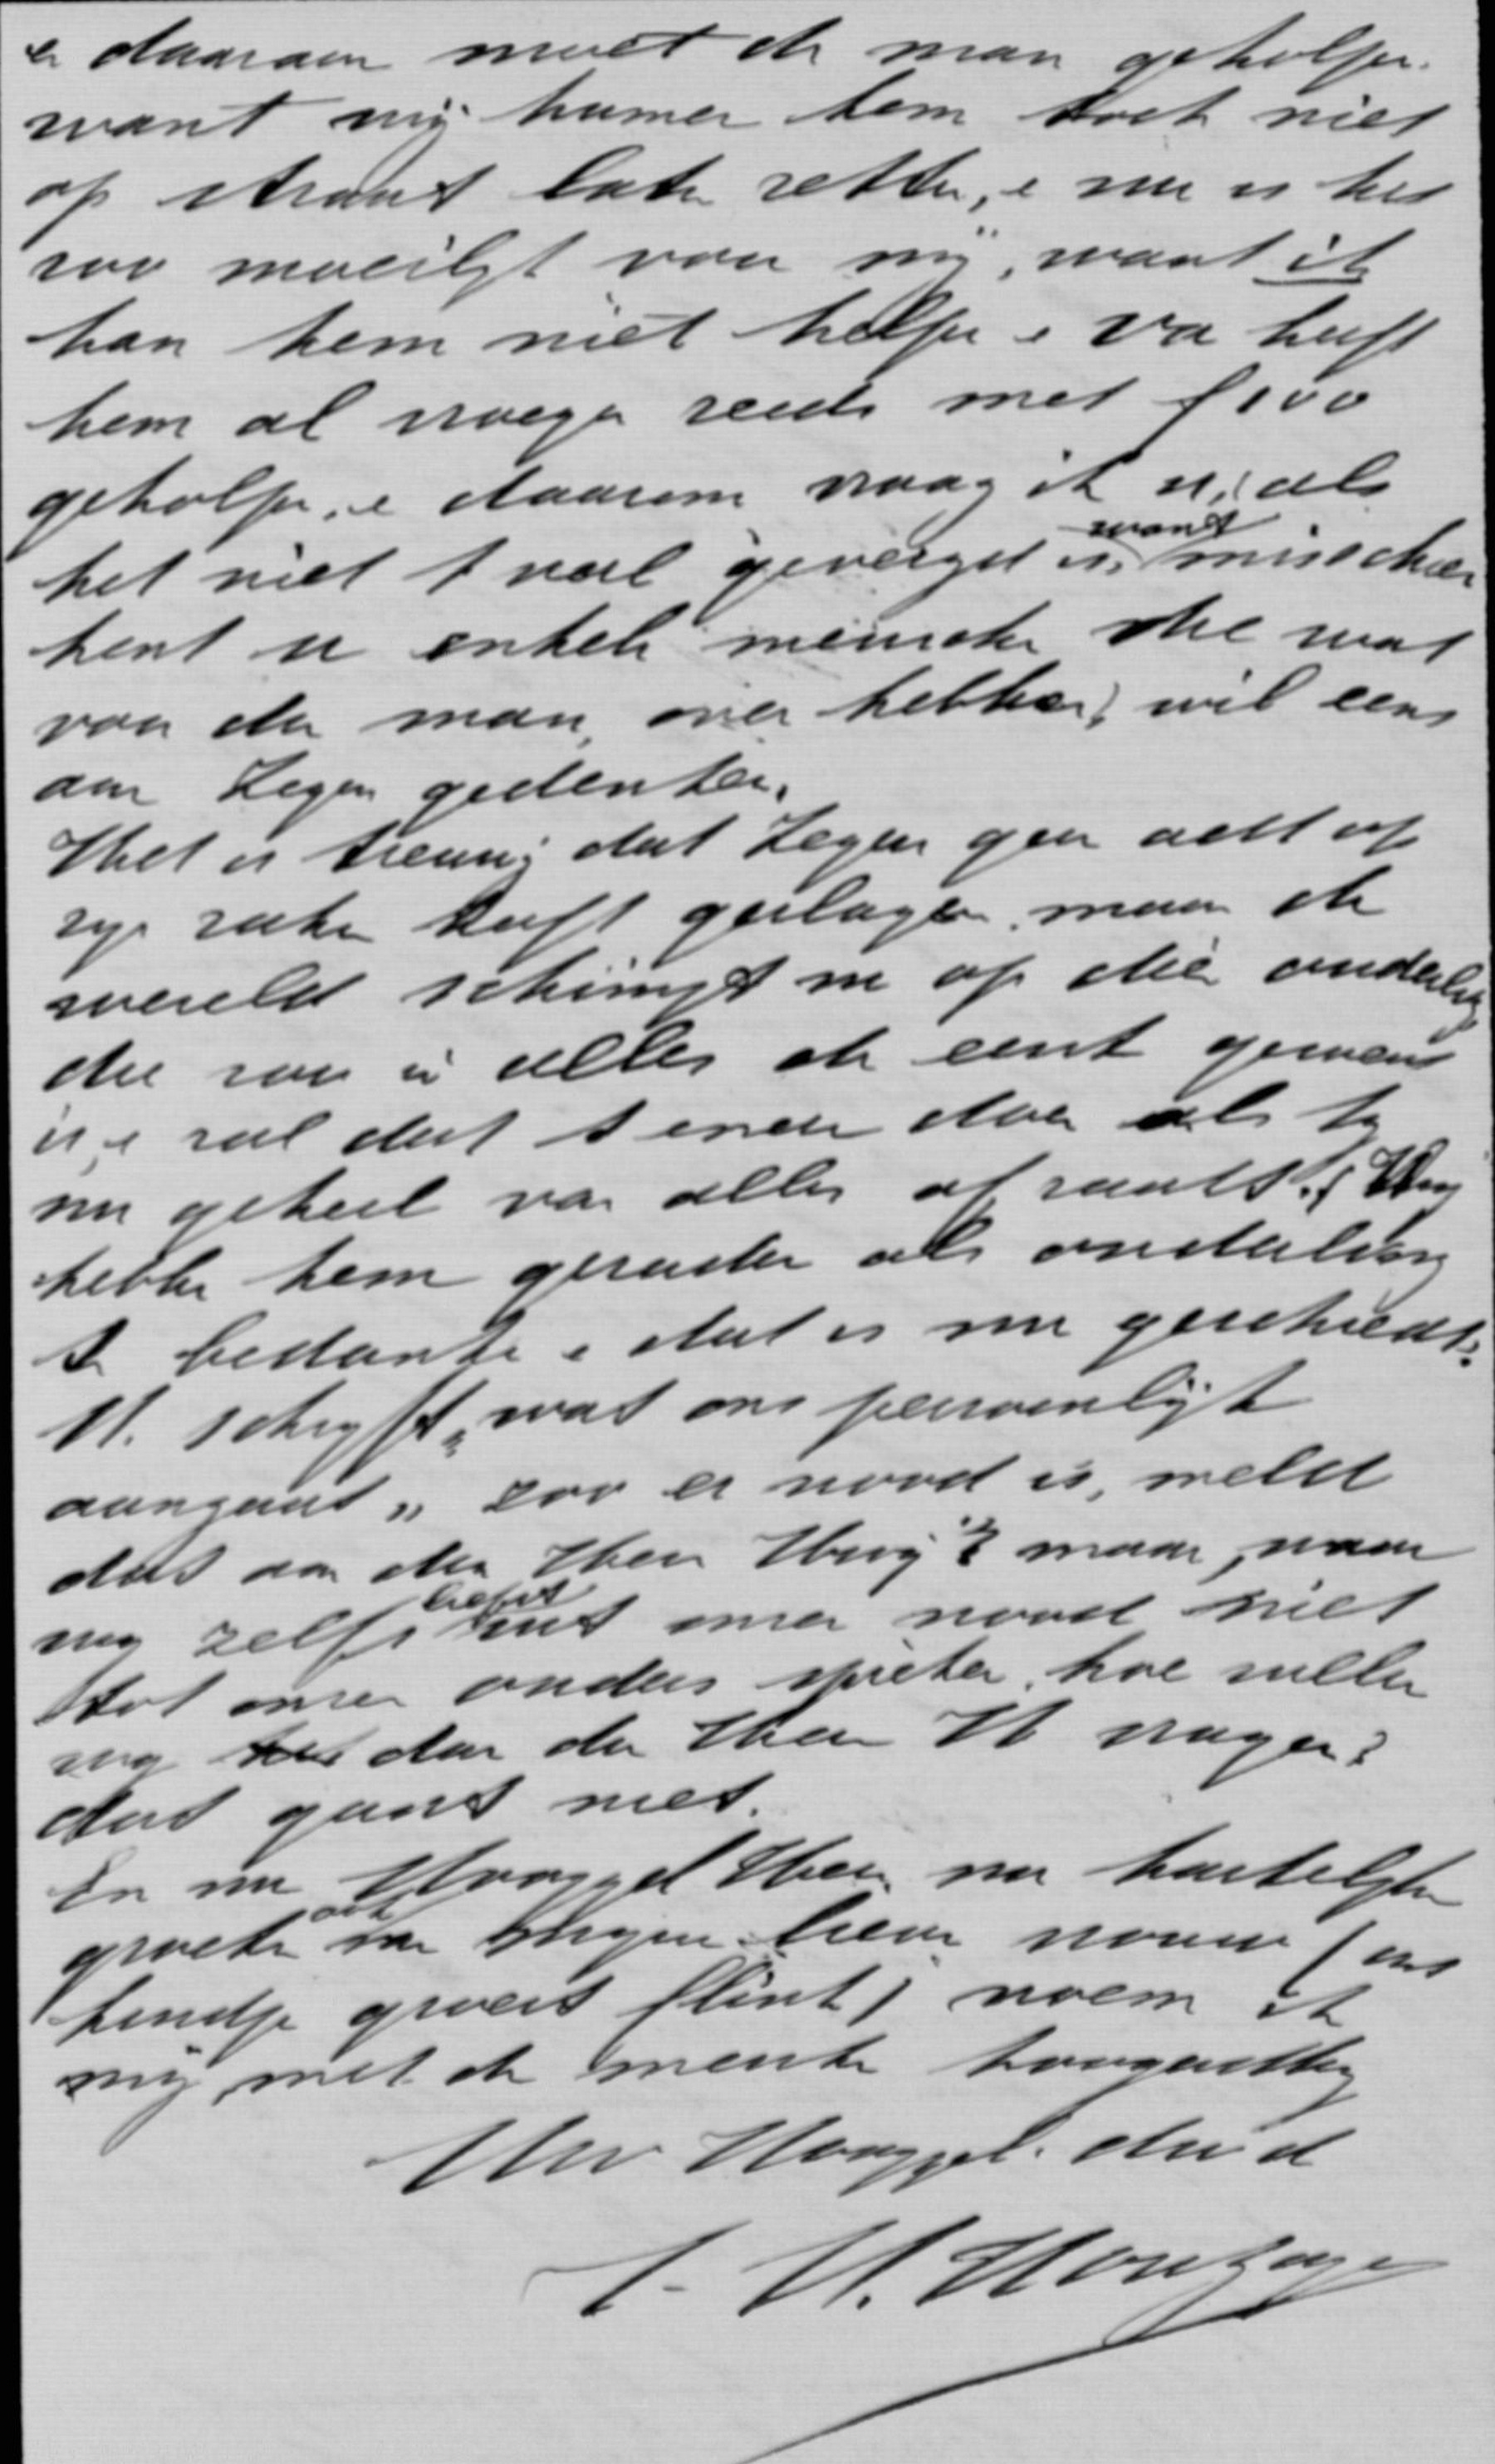 en daarom moet de man geholpen.
want wij kunnen hem toch niet
op straat laten zetten, en nu is het
zoo moeilijk voor mij, want ik
kan hem niet helpen en Va heeft
hem al vroeger reeds met f 100
geholpen, en daarom vraag ik u, als
het niet te veel gevergd is, want misschien
kent u enkele menschen die wat
voor den man over hebben, wil eens
aan Zegers gedenken.
Het is treurig dat Zegers geen acht op
zijn zaken heeft geslagen, maar de
wereld schimpt nu op die ouderling
die zoo in alles de eerst geweest
is, en zal dat te meer doen als hij
nu geheel van alles af raakt. Wij
hebben hem geraden als ouderling
te bedanken en dat is nu geschiedt.
U. schryft, „wat ons persoonlijk
aangaat„ zoo er nood is, meld
dat aan den Heer Huij? maar, waar
wij zelfs liefst met onzen nood niet
tot onze ouders spreken, hoe zullen
wij dan den Heer H vragen?
dat gaat niet.
En nu Hooggel Heer na hartelijke
groeten ook van mijn lieve vrouw (ons
kindje groeit flink) noem ik
mij met de meeste hoogachting
Uw Hooggel. dw d